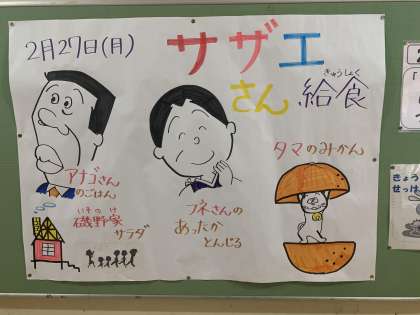 2月27日(月)
サザエ
さん
きゅうしょく
給食
アナゴさん
のごはん
いそ の け
磯野家
サラダ
フネさんの
あったか
とんじる
タマのみかん
きょう
せっけ